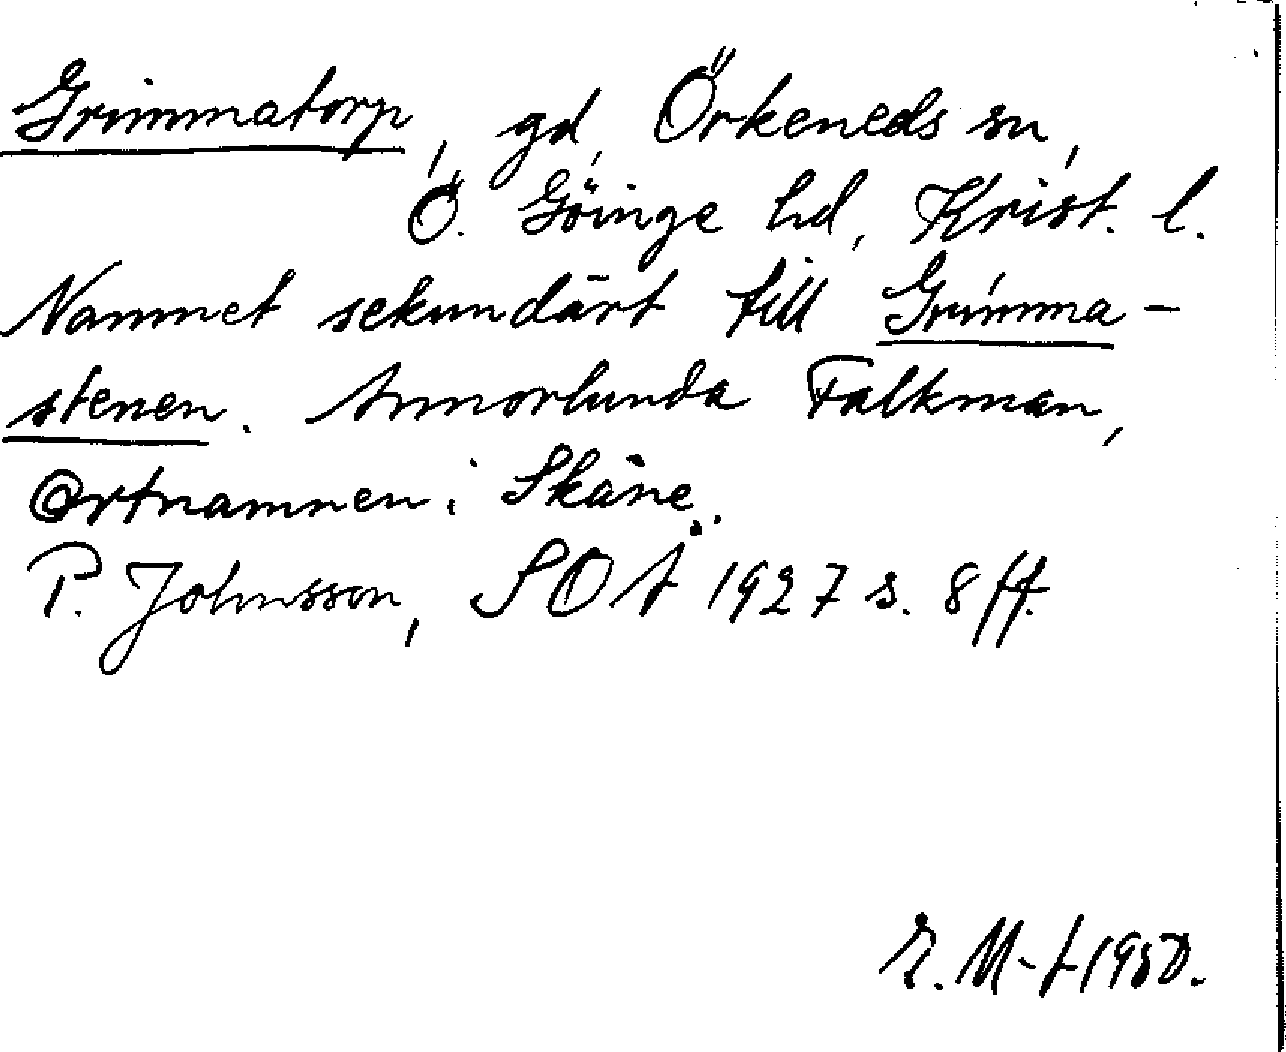 Grimmatorp, gd, Örkeneds sn,
Ö. Göinge hd, Krist. l.
Namnet sekundärt till Grimma-
stenen. Annorlunda Falkman,
Ortnamnen i Skåne.
P. Johnsson, SOÄ 1927 s. 8 ff.
E. M-t 1950.